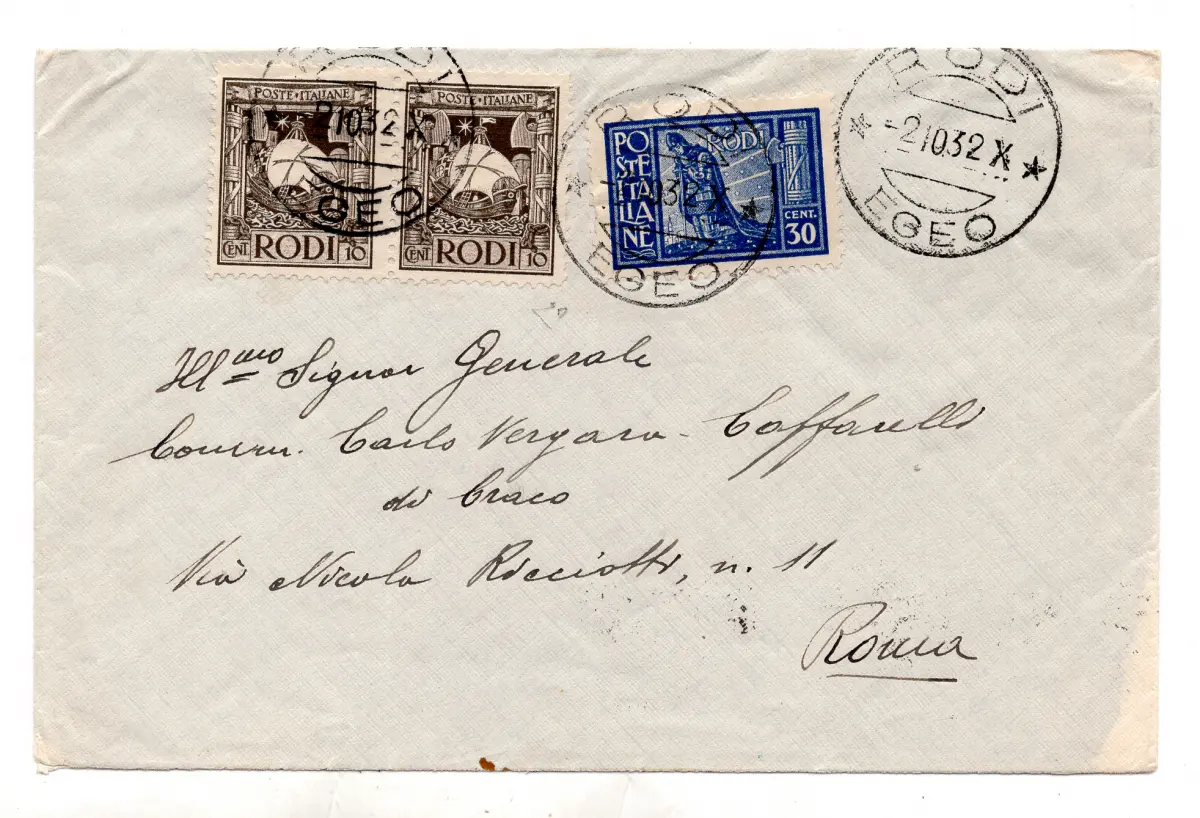 POSTE·ITALIANE
CENT. RODI 10
POSTE·ITALIANE
CENT. RODI 10
RODI
-21032X
EGEO
POSTE ITALIANE
RODI
CENT. 30
RODI
1032X
EGEO
RODI
-21032X
EGEO
Ill^mo Signor Generale
Comm. Carlo Vergara - Caffarelli
di Craco
Via Nicola Ricciotti, n. 11
Roma